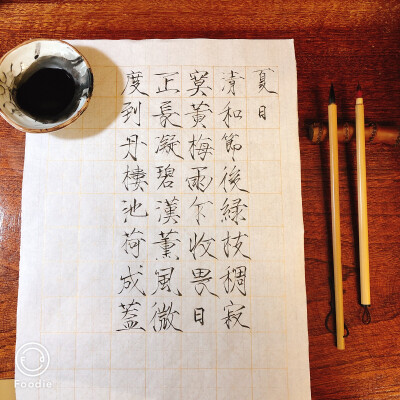 夏日
清和節後綠枝稠寂
寞黃梅雨乍收畏日
正長凝碧漢薰風微
度到丹樓池荷成蓋
Foodie